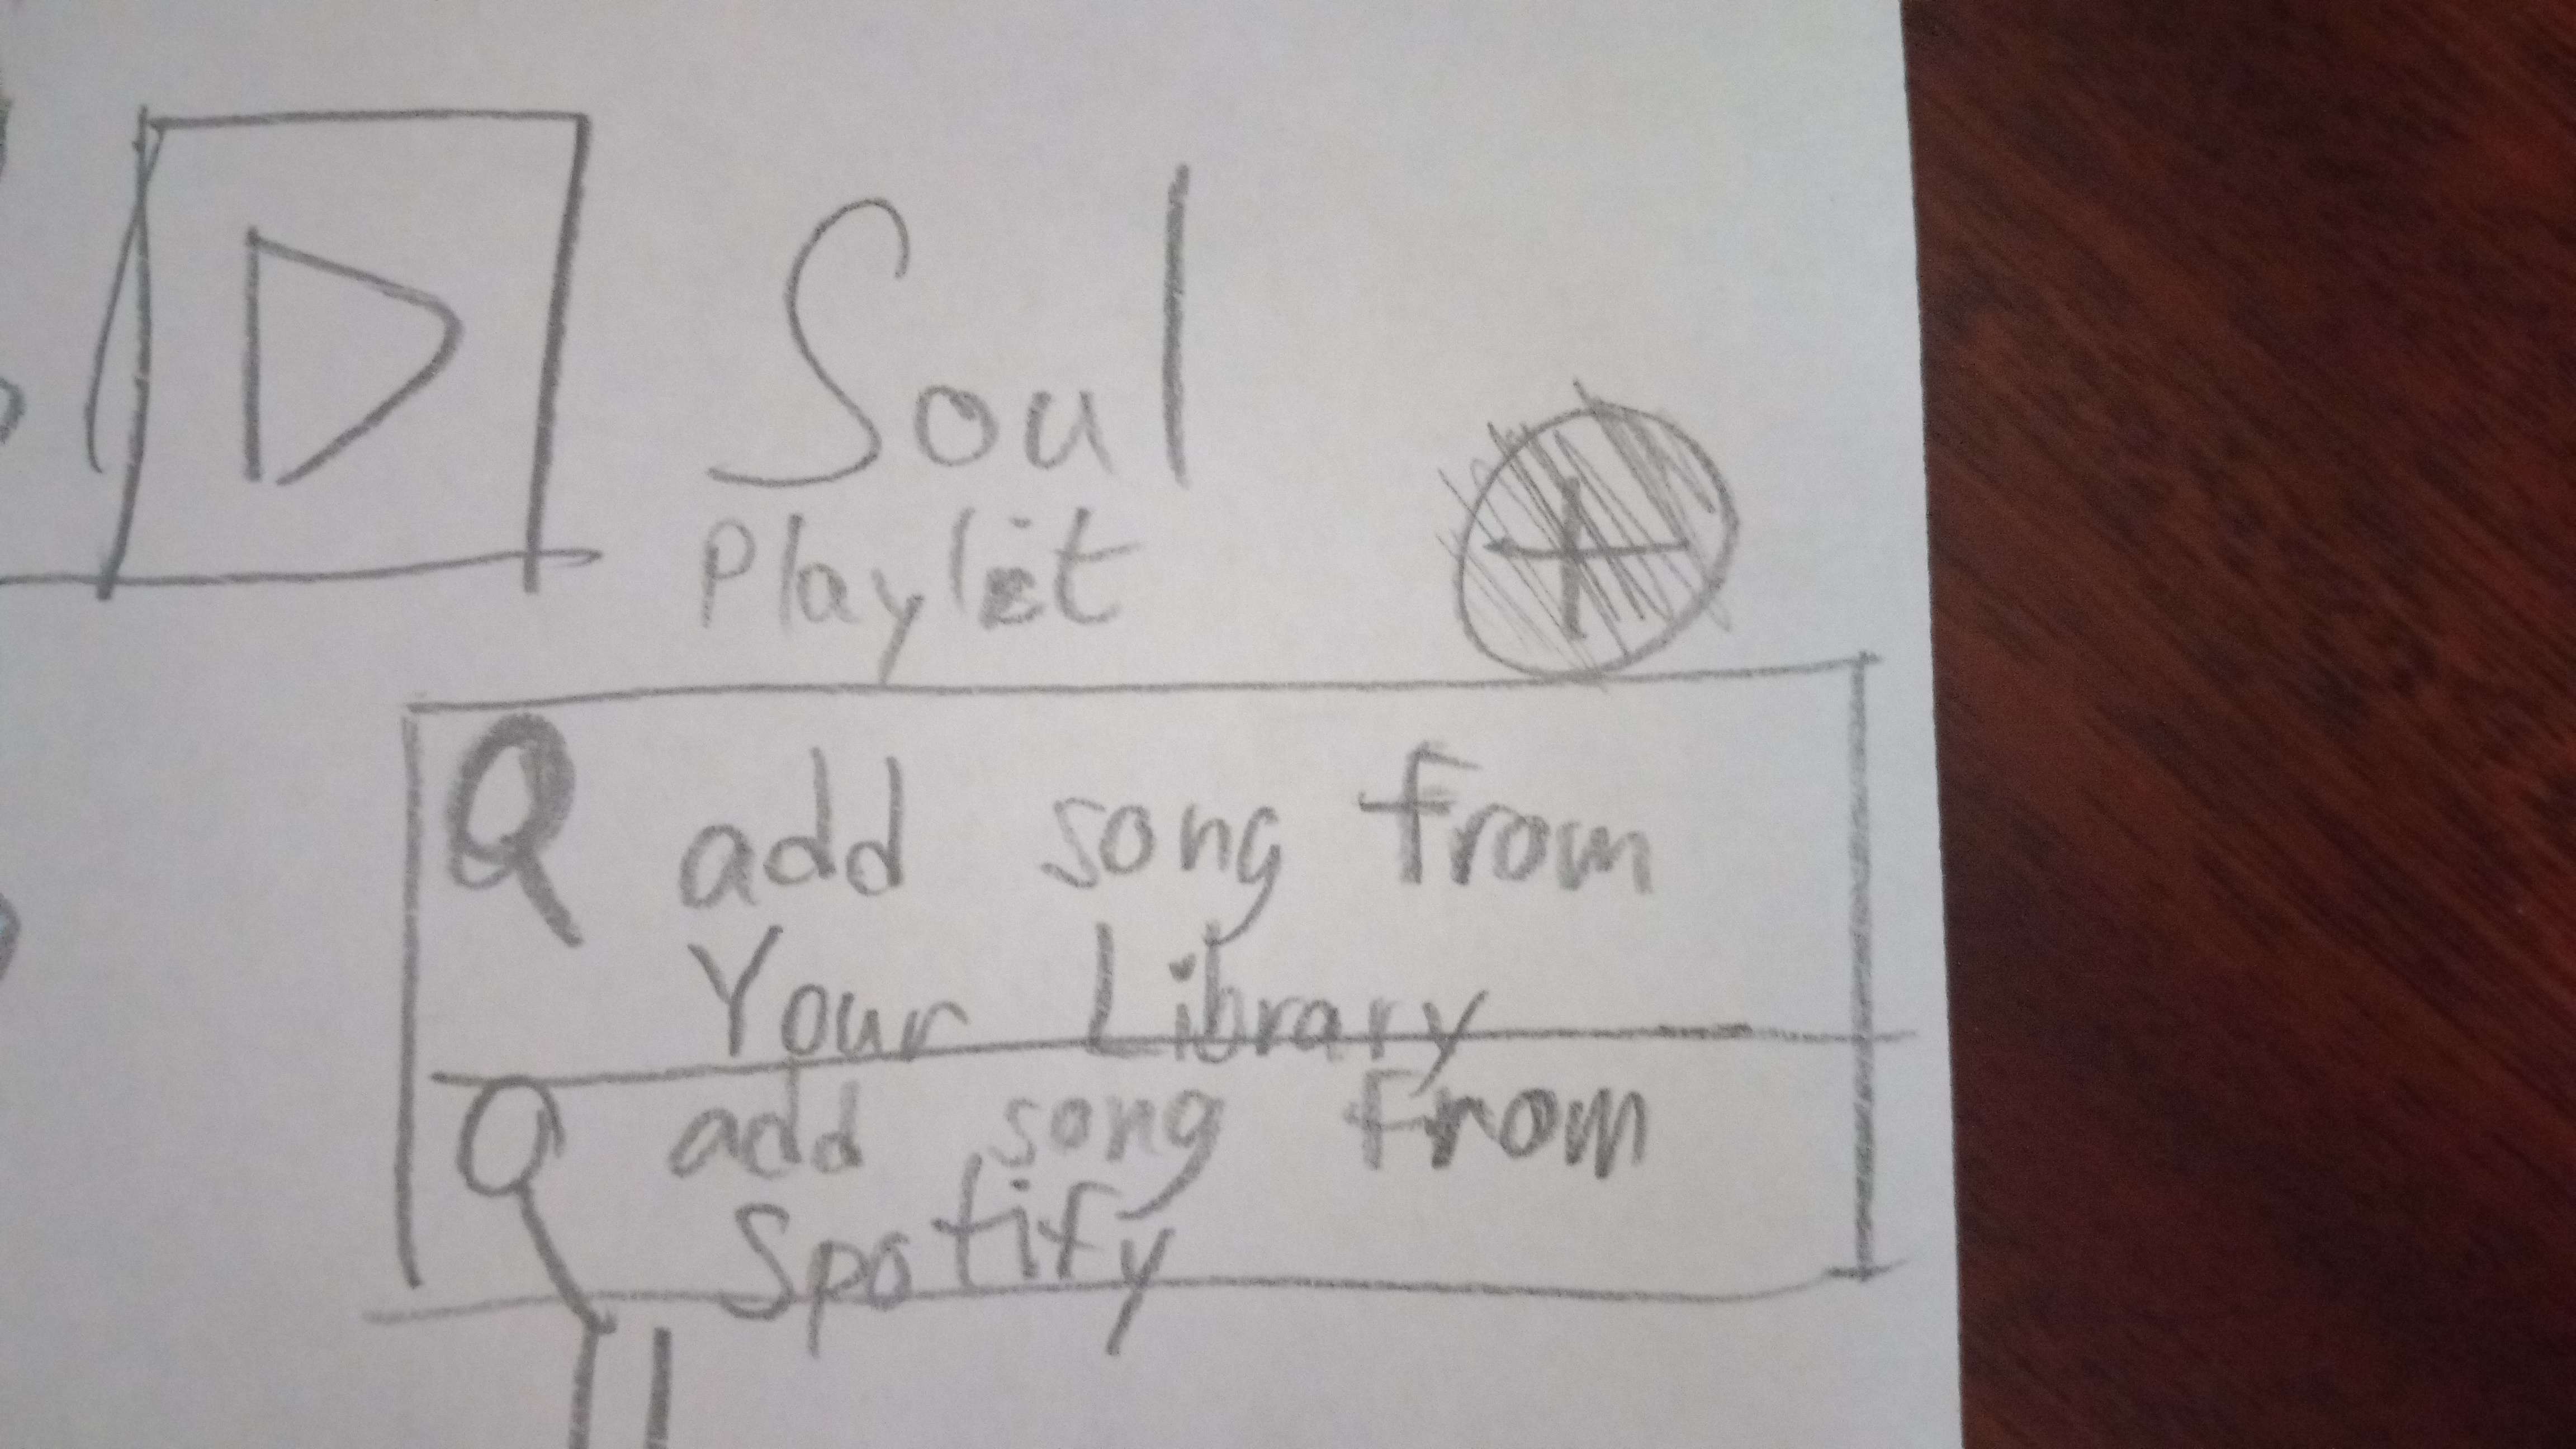 Soul
Playlist
add song from
Your Library
add song from
Spotify